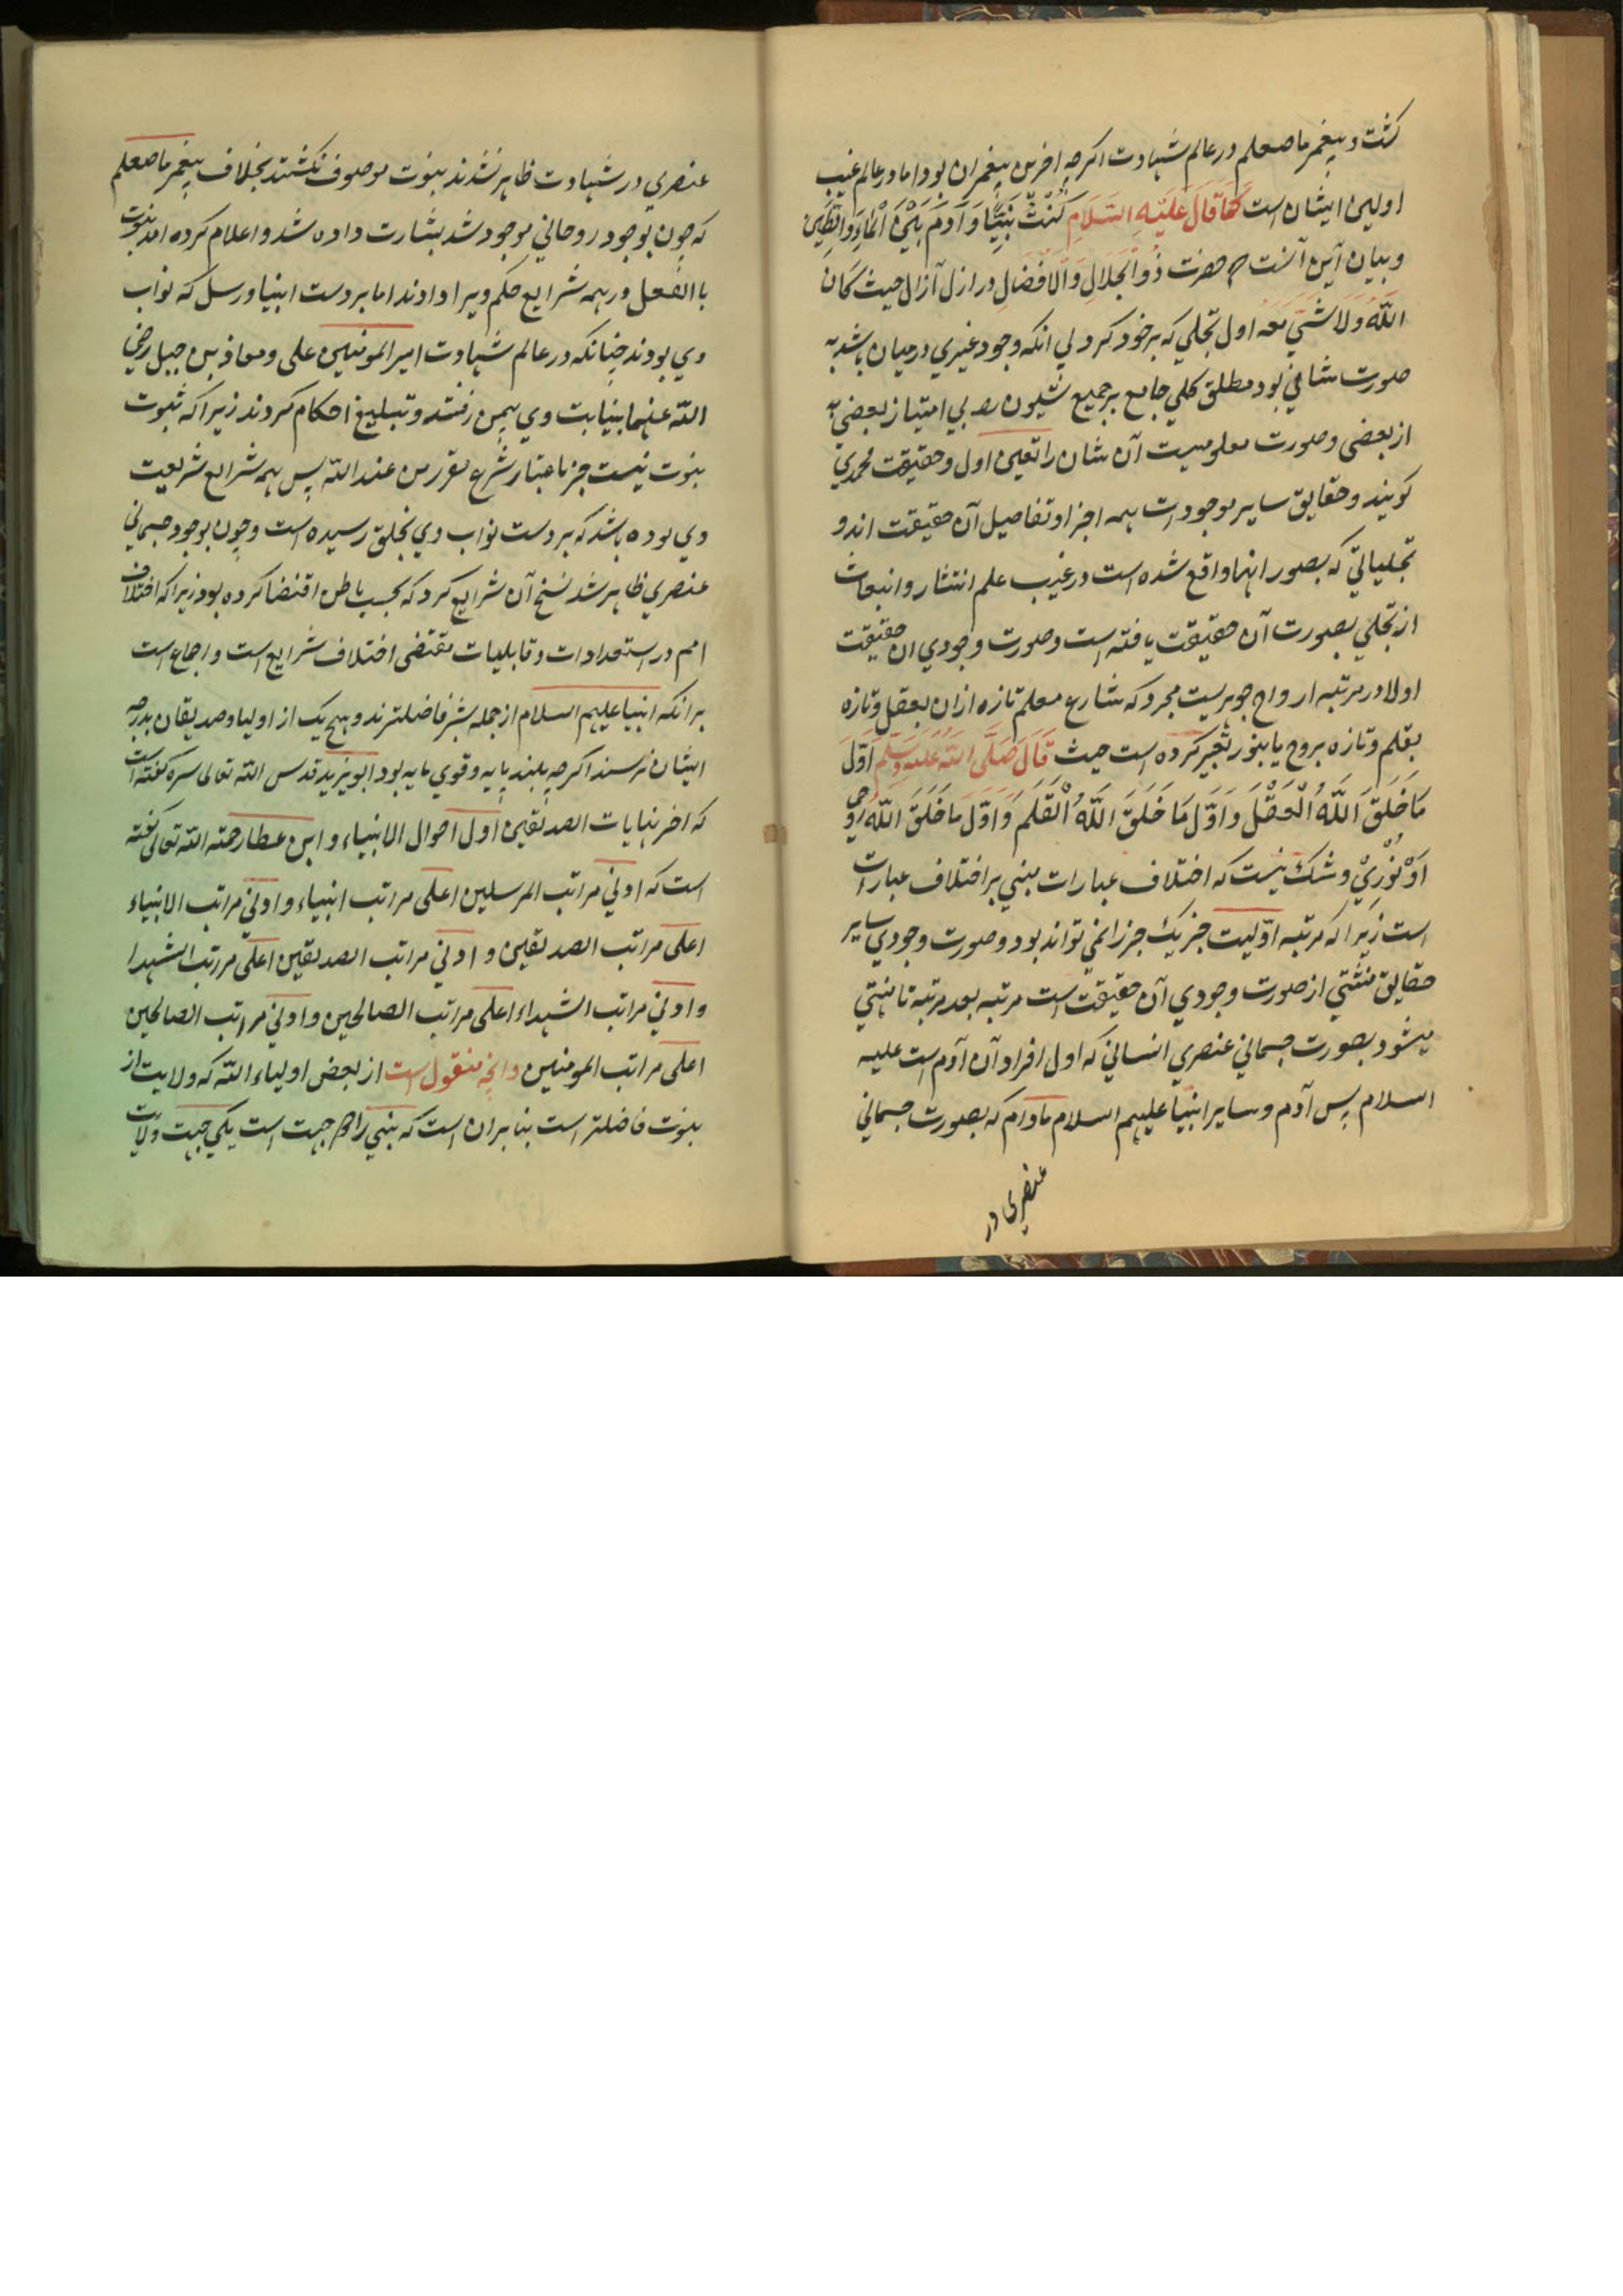 کشت و پیغمبر ما صعلم در عالم شهادت اکرچه اخرین پیغمبران بود اما در عالم غیب
اولین ایشان است کَمَا قَالَ عَلَیْهِ السَّلَامِ کُنْتُ نَبِیًّا وَ آدَمُ بَیْنَ الْمَاءِ وَ الطِّینِ
و بیان آین آنست که حضرت ذُو الْجَلَالِ وَ الْاَفْضَالِ در ازل آزال حیث کَانَ
اللّٰهُ وَلَا شَیَٔ مَعَه اول تجلی که بر خود کرد لی انکه وجود غیری در میان باشد به
صورت شانی بود مطلق کلی جامع بر جمیع شئیون را بی امتیاز بعضی
از بعضی و صورت معلومیت آن شان را تعین اول و حقیقت محمدی
کویند و حقایق سایر موجودات همه اجزا و تفاصیل آن حقیقت اند و
تجلیاتی که بصور انها واقع شده است در غیب علم انتشار و انبعاث
از تجلی بصورت آن حقیقت یافته است و صورت وجودی ان حقیقت
اولا در مرتبه ارواح جوهریست مجرد که شارع معلم تازه ازان بعقل و تازه
بقلم و تازه بروح یا بنور تعبیر کرده است حیث قَالَ صَلَّی اللّٰهُ عَلَیْهِ وَ سَلَّم اَوَّلَ
مَا خَلَقَ اللّٰهُ الْعَقْلَ وَ اَوَّل مَا خَلَقَ اللّٰهُ الْقَلَمَ وَ اَوَّل مَا خَلَقَ اللّٰهُ رُوحِی
اَوْ نُوْرِیْ و شک نیست که اختلاف عبارات مبنی بر اختلاف عبارات
است زیرا که مرتبه اوّلیت جز یک جز را نمی تواند بود و صورت وجودی سایر
حقایق منشئی از صورت وجودی آن حقیقت است مرتبه بعد مرتبه تا منتهی
میشود بصورت جسمانی عنصری انسانی که اول افراد آن آدم است علیه
السلام پس آدم و سایر انبیا علیهم السلام مادام که بصورت جسمانی
عنصری در
عنصری در شهادت ظاهر نشدند بنبوت موصوف نکشتند بخلاف پیغمبر ما صعلم
که چون بوجود روحانی موجود شد بشارت داده شد و اعلام کرده امد بنبوت
با الفعل و در همه شرایع حکم ویرا دادند اما بر دست انبیا و رسل که نواب
وی بودند چنانکه در عالم شهادت امیر المومنین علی و معاذ بن جبل رضی
اللّٰه عنهما بنیابت وی بیمن رفتند و تبلیغ احکام کردند زیرا که ثبوت
نبوت نیست جز باعتبار شرع مقرر من عند اللّٰه پس همه شرایع شریعت
وی بوده باشد که بر دست نواب وی بخلق رسیده است و چون بوجود جسمانی
عنصری ظاهر شد نسخ آن شرایع کرد که بحسب باطن اقتضا کرده بود زیرا که اختلاف
امم در استعدادات و قابلیات مقتضی اختلاف شرایع است و اجماع است
برانکه انبیا علیهم السلام از جمله بشر فاضلترند و هیچ یک از اولیا و صدیقان بدرجه
ایشان نرسند اکرچه بلند پایه و قوی مایه بود ابو یزید قدس اللّٰه تعالی سره کفته است
که اخر نهایات الصدیقین اول احوال الانبیاء و ابن عطا رحمته اللّٰه تعالی کفته
است که اونی مراتب المرسلین اعلی مراتب انبیاء و اونی مراتب الانبیاء
اعلی مراتب الصدیقین و ادنی مراتب الصدیقین اعلی مراتب الشهدا
و اونی مراتب الشهداء اعلی مراتب الصالحین و اونی مراتب الصالحین
اعلی مراتب المومنین و انچه منقول است از بعض اولیاء اللّٰه که ولایت از
نبوت فاضلتر است بنابران است که نبی را دو جهت است یکی جهت ولایت